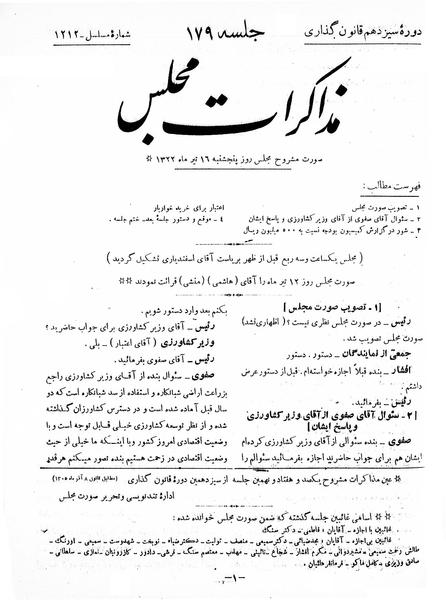 دورهٔ سیزدهم قانون گذاری
جلسه ۱۷۹
شمارهٔ مسلسل - ۱۲۱۲
مذاکرات مجلس
صورت مشروح مجلس روز پنجشنبه ۱۶ تیر ماه ۱۳۲۲ *
فهرست مطالب:
۱ - تصویب صورت مجلس
۲ - سئوال آقای صفوی از آقای وزیر کشاورزی و پاسخ ایشان
۳ - شور در گزارش کمیسیون بودجه نسبت به ۵۰۰ میلیون ریال
اعتبار برای خرید خواربار
۴ - موقع و دستور جلسهٔ بعد - ختم جلسه.
(مجلس یکساعت وسه ربع قبل از ظهر بریاست آقای اسفندیاری تشکیل گردید)
صورت مجلس روز ۱۲ تیر ماه را آقای (هاشمی) (منشی) قرائت نمودند **
[۱ - تصویب صورت مجلس]
رئیس - در صورت مجلس نظری نیست؟ (اظهاری نشد)
صورت مجلس تصویب شد.
جمعی از نمایندگان - دستور. دستور
افشار - بنده قبلاً اجازه خواسته‌ام. قبل از دستور عرض
داشتم.
رئیس - بفرمائید.
[۲ - سئوال آقای صفوی از آقای وزیر کشاورزی
و پاسخ ایشان]
صفوی - بنده سئوالی از آقای وزیر کشاورزی کرده‌ام
ایشان هم برای جواب حاضرند اجازه بفرمائید سئوالم را
بکنم بعد وارد دستور شویم.
رئیس - آقای وزیر کشاورزی برای جواب حاضرید؟
وزیر کشاورزی (آقای اعتبار) - بلی.
رئیس - آقای صفوی بفرمائید.
صفوی - سئوال بنده از آقای وزیر کشاورزی راجع
بزراعت اراضی شبانکاره و استفاده از سد شبانکاره است که دو
سال قبل آماده شده است و در دسترس کشاورزان گذاشته
شده و از نظر توسعه کشاورزی خیلی قابل توجه است و با
وضعیت اقتصادی امروز کشور و با اینکه ما خیلی از حیث
وضعیت اقتصادی در زحمت هستیم بنده تصور میکنم هر قدر
* عین مذاکرات مشروح یکصد و هفتاد و نهمین جلسه از سیزدهمین دورهٔ قانون گذاری (مطابق قانون ۸ آذر ماه ۱۳۰۵)
ادارهٔ تندنویسی و تحریر صورت مجلس
** اسامی غائبین جلسه گذشته که ضمن صورت مجلس خوانده شده:
غائبین با اجازه - آقایان: فاطمی - دکتر سنگ
صادق وزیری - کامل ماکو - فرمانفرمائیان.
-۱-